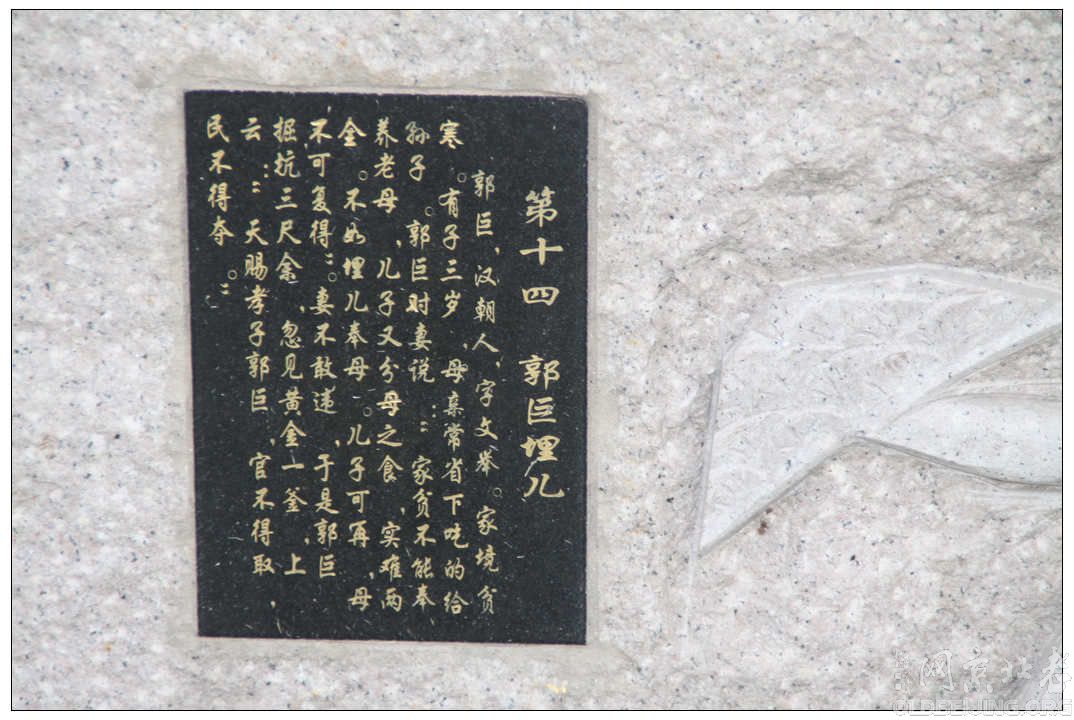 第十四 郭巨埋儿
郭巨，汉朝人，字文举。家境贫
寒。有子三岁，母亲常省下吃的给
孙子。郭巨对妻说：“家贫不能奉
养老母，儿子又分母之食，实难两
全。不如埋儿奉母。儿子可再，母
不可复得”。妻不敢违，于是郭巨
掘抗三尺余，忽见黄金一釜，上
云：“天赐孝子郭巨，官不得取，
民不得夺。”
网京北老
OLDBEIJING.ORG